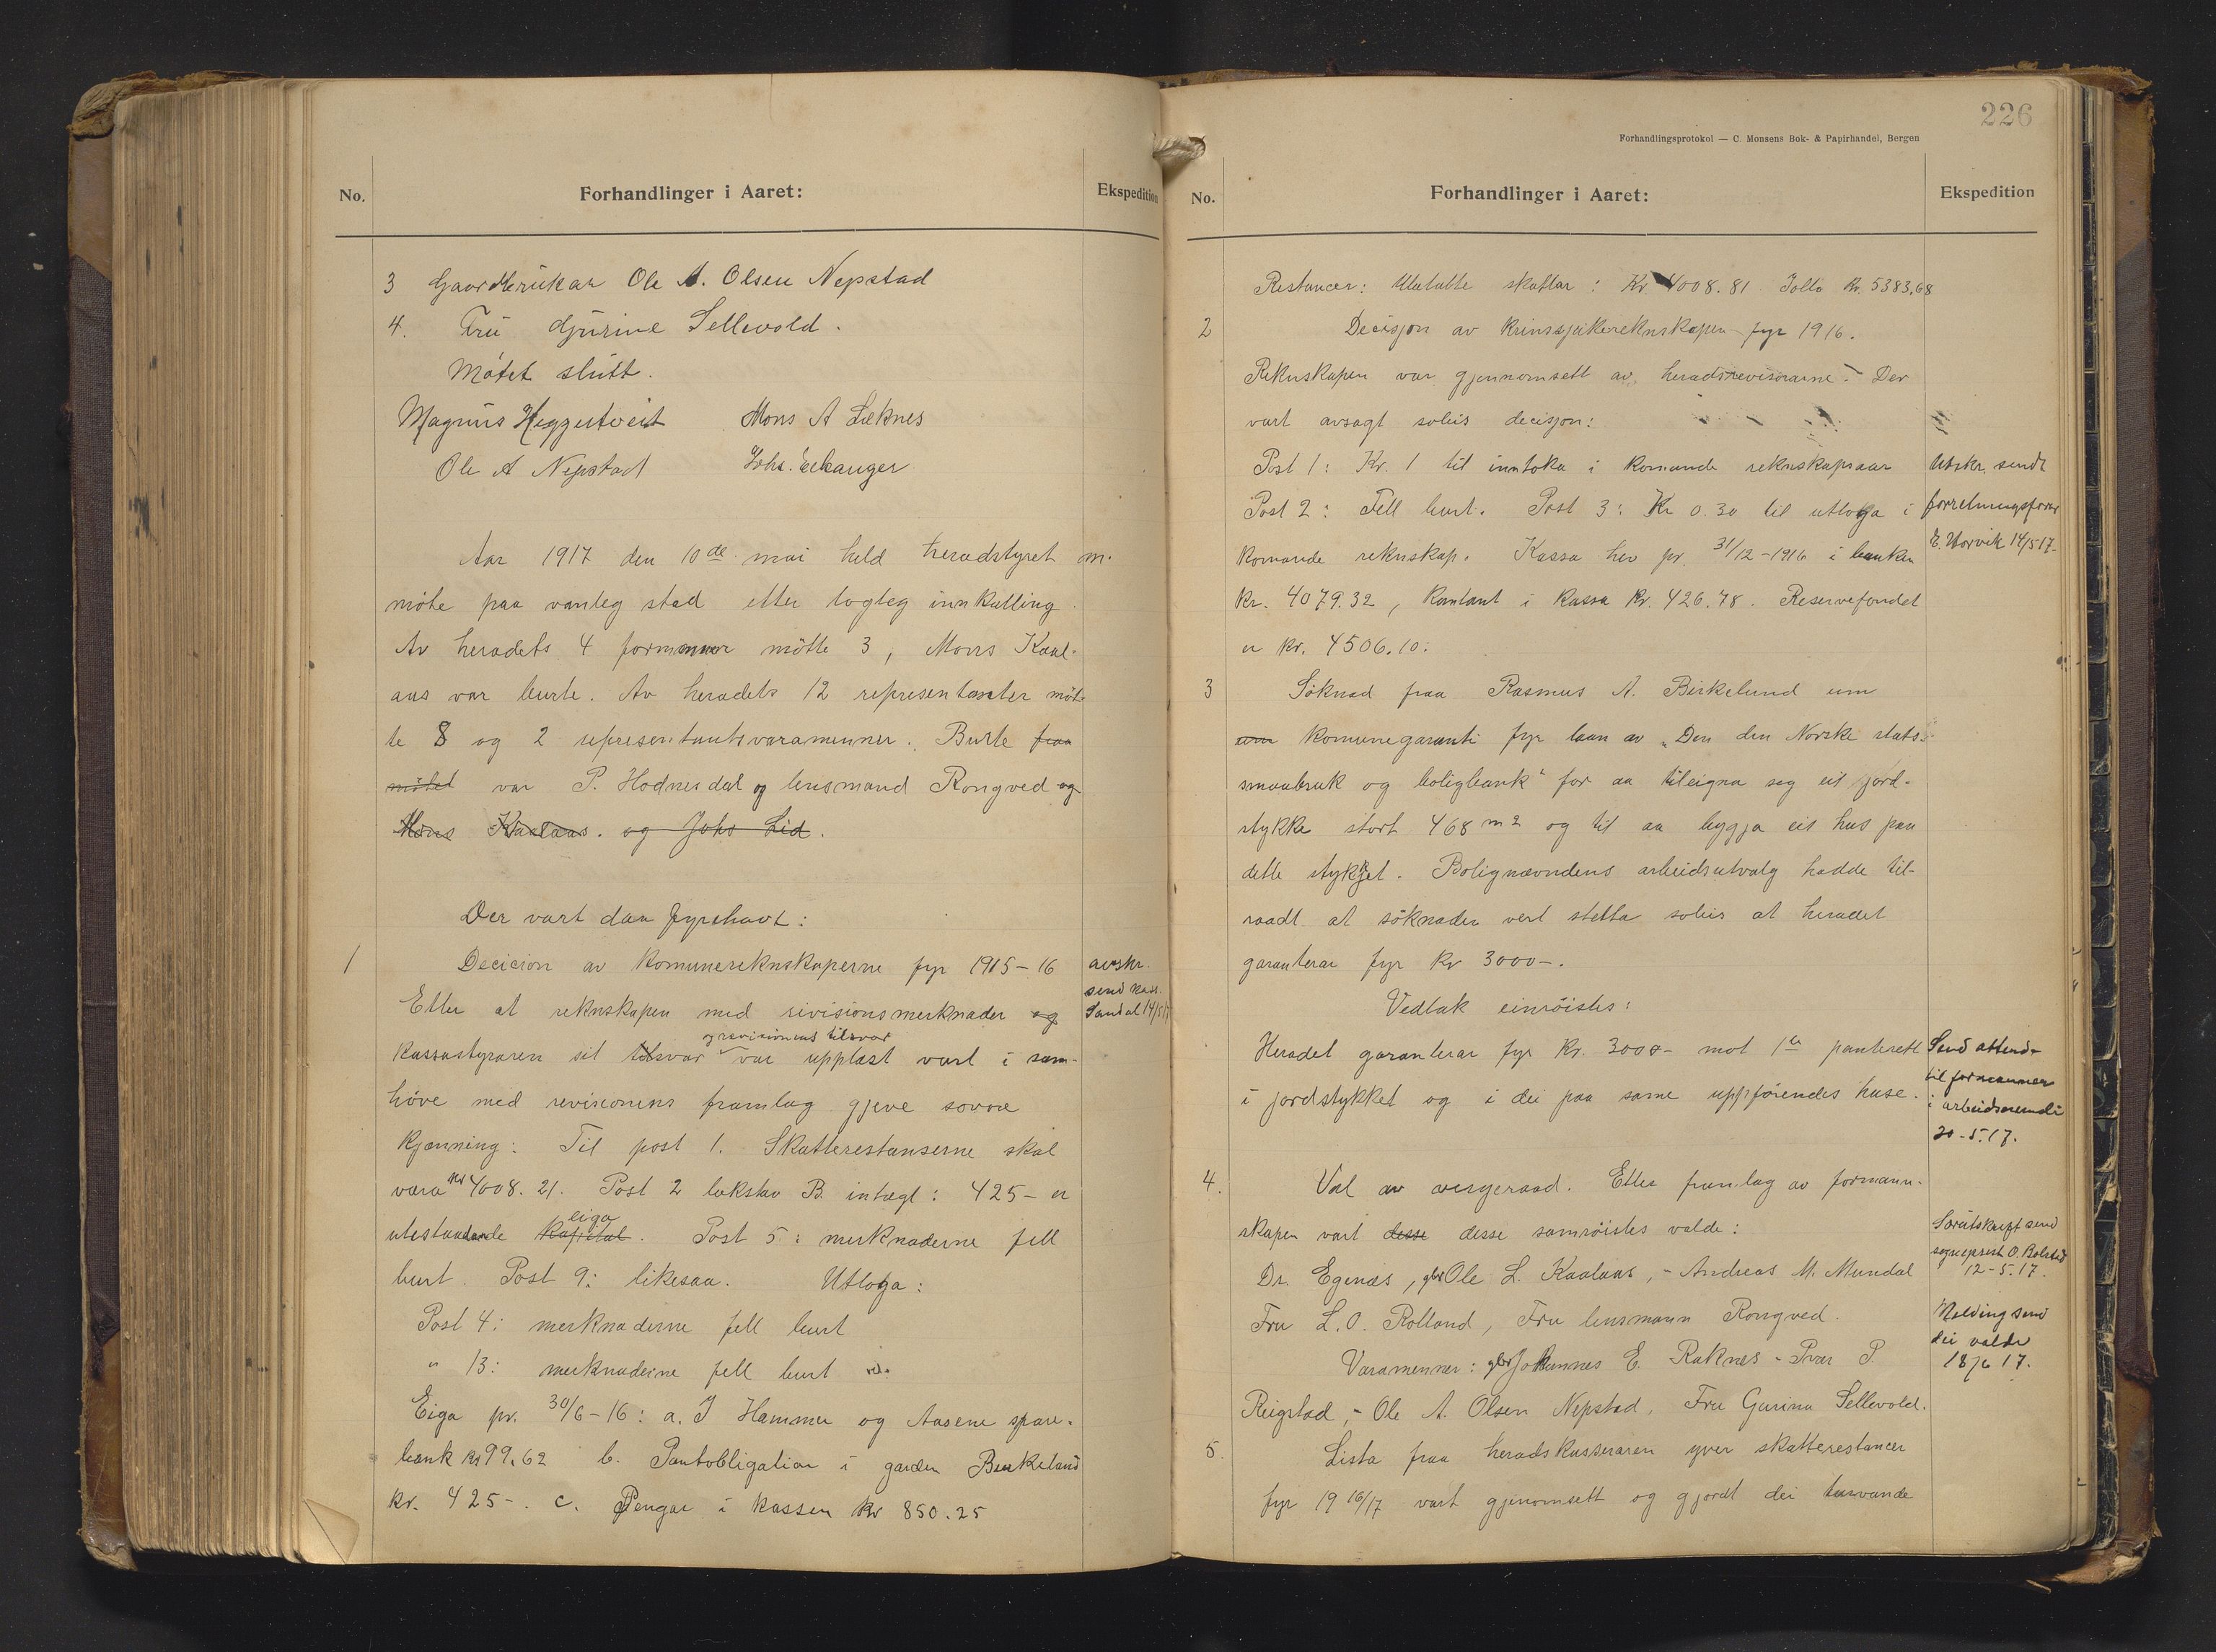 No.
Forhandlinger i Aaret:
Ekspedition
3 Gaardbrukar Ole A. Olsen Nepstad
4. Fru Gjurine Sellevold.
Møtet slutt.
Magnus Heggertveit Mons A Læknes
Ole A Nepstad Johs. Eikanger
Aar 1917 den 10de mai held heradstyret m.
møte paa vanleg stad etter logleg innkalling
Av heradets 4 formenner møtte 3, Mons Kaal-
aas var burte. Av heradets 12 representanter møt-
te 8 og 2 representantsvaramenner. Burte fraa
møtet var P. Hodnesdal og lensmand Rongved og
Mons Kaalaas. og Johs Lid.
Der vart daa fyrehavt:
1 Decicion av komunereknskaperne fyr 1915-16
avskr.
send kass.
Sandal 14/5 17
Etter at reknskapen med rivisionsmerknader og
og revisionens tilsvar
kassastyraren sit tilsvar var upplæst vart i sam-
høve med revisionens framlag gjeve sovore
kjenning: Til post 1. Skatterestanserne skal
vara kr 4008.21. Post 2 bokstav B. intægt: 425- er
eiga
utestaaande kapital. Post 5: merknaderne fell
burt. Post 9: likesaa. Utloga:
Post 4: merknaderne fell burt
" 13: merknaderne fell burt
Eiga pr. 30/6-16: a. I Hammer og Aasene spare-
bank kr 99.62 b. Pantobligation i garden Birkeland
kr. 425-. c. Pengar i kassen kr 850.25
226
Forhandlingsprotokol — C. Monsens Bok- & Papirhandel, Bergen
No.
Forhandlinger i Aaret:
Ekspedition
Restancer: Utetalte skattar: Kr. 4008.81 Tollo kr. 5383,68
2 Decisjon av krinssjukereknskapen fyr 1916.
Reknskapen var gjennomsett av heradsrevisorarne. - Der
vart avsagt soleis decisjon:
Post 1: Kr. 1 til inntoka i komande reknskapsaar
Utskr. sendt
Post 2: Fell burt. Post 3: Kr 0.30 til utloga i
forretningsfører
komande reknskap. Kassa hev pr. 31/12-1916 i banken
E. Horvik 14/5 17.
kr. 4079.32, kontant i kassa kr. 426.78. Reservefondet
er kr. 4506.10.
3 Søknad fraa Rasmus A. Birkelund um
um komunegaranti fyr laan av "Den den Norske stats-
smaabruk og boligbank" for aa tileigna seg eit jord-
stykke stort 468 m2 og til aa byggja eit hus paa
dette stykkjet. Bolignævndens arbeidsutvalg hadde til-
raadt at søknaden vert stetta soleis at heradet
garanterar fyr kr 3000-.
Vedtak einrøistes:
Heradet garanterar fyr kr. 3000- mot 1ste panterett
Send attend-
i jordstykket og i dei paa same uppførendes huse.
til formannen
i arbeidsnemdi
30-5.17.
4. Val av vergeraad. Etter framlag av formann-
skapen vart desse desse samrøistes valde:
Særutskrift send
sogneprest O. Bolstad
12-5.17.
Dr. Egenæs, gbr Ole L. Kaalaas, - Andreas M. Mundal
Fru L. O. Rolland, Fru lensmann Rongved.
Melding send
dei valde
18/6 17.
Varamenner: gbr Johannes E. Raknes - Ivar P.
Reigstad, - Ole A. Olsen Nepstad, Fru Gurina Sellevold.
5. Lista fraa heradskasseraren yver skatterestancer
fyr 1916/17 vart gjenomsett og gjordt dei turvande